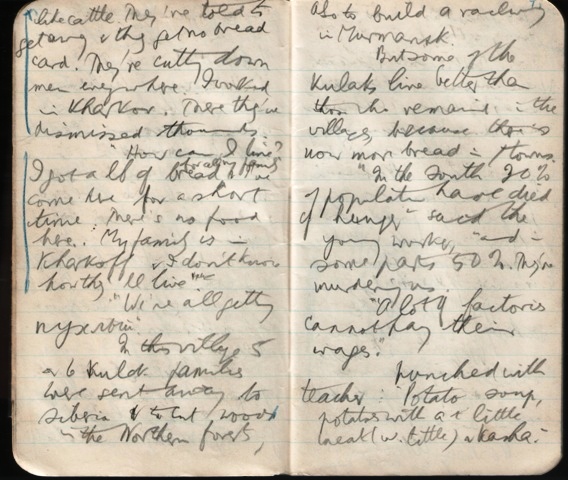 like cattle. They've told to
get away & they get no bread
card. They're cutting down
men everywhere. I worked
in Kharkov. There they've
dismissed thousands.
"How can I live?
I got a lb of bread for all my family & I've
come here for a short
time. There's no food
here. My family is in
Kharkoff & I don't know
how they'll live"
"We're all getting
In this village 5
or 6 Kulak families
were sent away to
Siberia & to cut wood
in the Northern forests,
also to build a railway
in Murmansk.
But some of the
Kulaks live better than
those who remained in the
villages because there is
now more bread in towns.
"In the South 20%
of population have died
of hunger" said the
young worker, "and in
some parts 50%. They're
murdering us.
"A lot of factories
cannot pay their
wages."
Lunched with
teacher: Potato soup,
potatoes with a little
meat (v. little) & kasha.